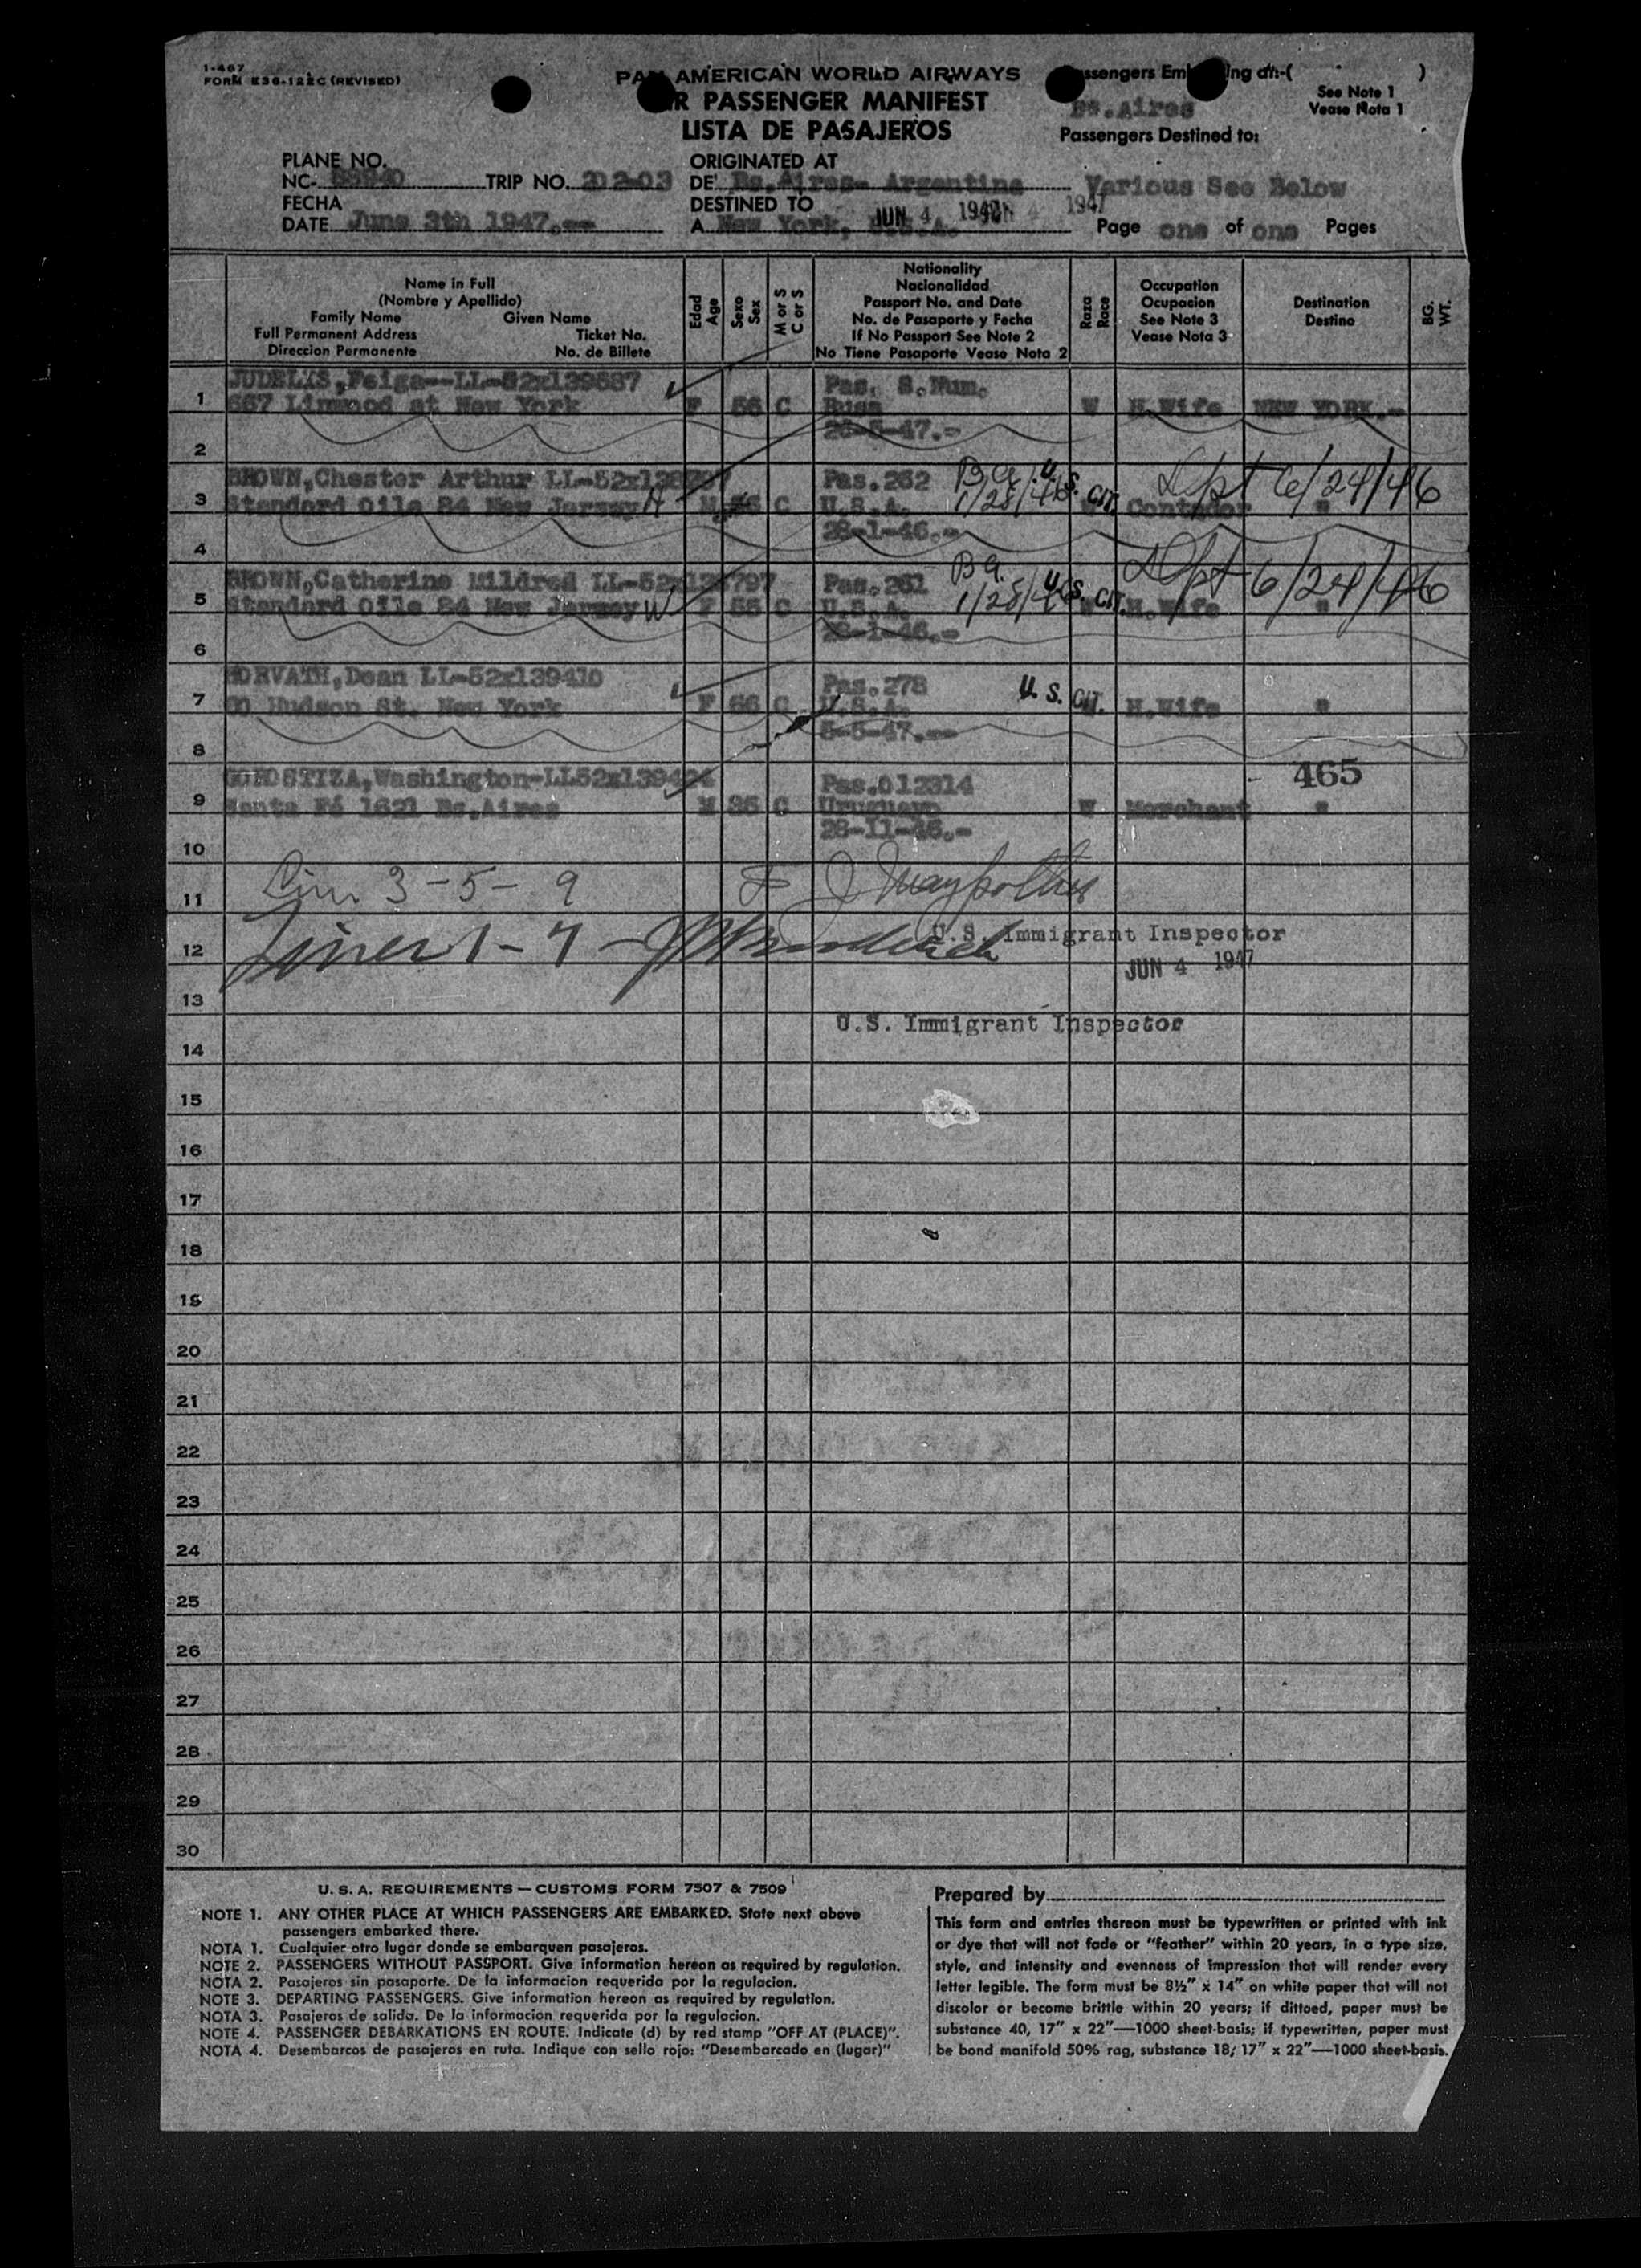 1-467
FORM E36-122C (REVISED)
PAN AMERICAN WORLD AIRWAYS
R PASSENGER MANIFEST
LISTA DE PASAJEROS
See Note 1
Vease Nota 1
Bs.Aires
Passengers Destined to:
Various See Below
PLANE NO.
NC-
TRIP NO. 202-03
FECHA
DATE June 3th 1947.--
ORIGINATED AT
DE Bs.Aires- Argentina
DESTINED TO
A New York, U.S.A.
JUN 4 1947
Page one of one Pages
Name in Full
(Nombre y Apellido)
Family Name Given Name
Full Permanent Address Ticket No.
Direccion Permanente No. de Billete
Edad
Age
Sexo
Sex
M or S
C or S
Nationality
Nacionalidad
Passport No. and Date
No. de Pasaporte y Fecha
If No Passport See Note 2
No Tiene Pasaporte Vease Nota 2
Raza
Race
Occupation
Ocupacion
See Note 3
Vease Nota 3
Destination
Destino
BG.
WT.
JUDELYS,Feiga--LL-52x139687 Pas. S.Num.
1 667 Linwood st New York F 56 C Rusa W H.Wife NEW YORK.-
2 26-5-47.-
BROWN,Chester Arthur Pas.262 1/28/46 U.S. CIT. 6/24/46
3 Standard Oile 84 New Jersey M C U.S.A. Contador "
4 28-1-46.-
BROWN,Catherine Mildred Pas.261 1/28/46 U.S. CIT. 6/24/46
5 Standard Oile 84 New Jersey W F 56 C U.S.A. H.Wife "
6 28-1-46.-
HORVATH,Dean LL-52x139410 Pas.278 U.S. CIT.
7 Hudson St. New York F 56 C U.S.A. H.Wife "
8 5-5-47.--
GOROSTIZA,Washington-LL52x139424 Pas.012314 465
9 Santa Fé 1621 Bs.Aires M 36 C Uruguayo W Merchant "
28-11-46.-
10
11 3-5-9
U.S. Immigrant Inspector
12 Lines 1-7
JUN 4 1947
13
U.S. Immigrant Inspector
14
15
16
17
18
19
20
21
22
23
24
25
26
27
28
29
30
U. S. A. REQUIREMENTS — CUSTOMS FORM 7507 & 7509
NOTE 1. ANY OTHER PLACE AT WHICH PASSENGERS ARE EMBARKED. State next above
passengers embarked there.
NOTA 1. Cualquier otro lugar donde se embarquen pasajeros.
NOTE 2. PASSENGERS WITHOUT PASSPORT. Give information hereon as required by regulation.
NOTA 2. Pasajeros sin pasaporte. De la informacion requerida por la regulacion.
NOTE 3. DEPARTING PASSENGERS. Give information hereon as required by regulation.
NOTA 3. Pasajeros de salida. De la informacion requerida por la regulacion.
NOTE 4. PASSENGER DEBARKATIONS EN ROUTE. Indicate (d) by red stamp "OFF AT (PLACE)".
NOTA 4. Desembarcos de pasajeros en ruta. Indique con sello rojo: "Desembarcado en (lugar)"
Prepared by
This form and entries thereon must be typewritten or printed with ink
or dye that will not fade or "feather" within 20 years, in a type size,
style, and intensity and evenness of impression that will render every
letter legible. The form must be 8½" x 14" on white paper that will not
discolor or become brittle within 20 years; if dittoed, paper must be
substance 40, 17" x 22"—1000 sheet-basis; if typewritten, paper must
be bond manifold 50% rag, substance 18; 17" x 22"—1000 sheet-basis.